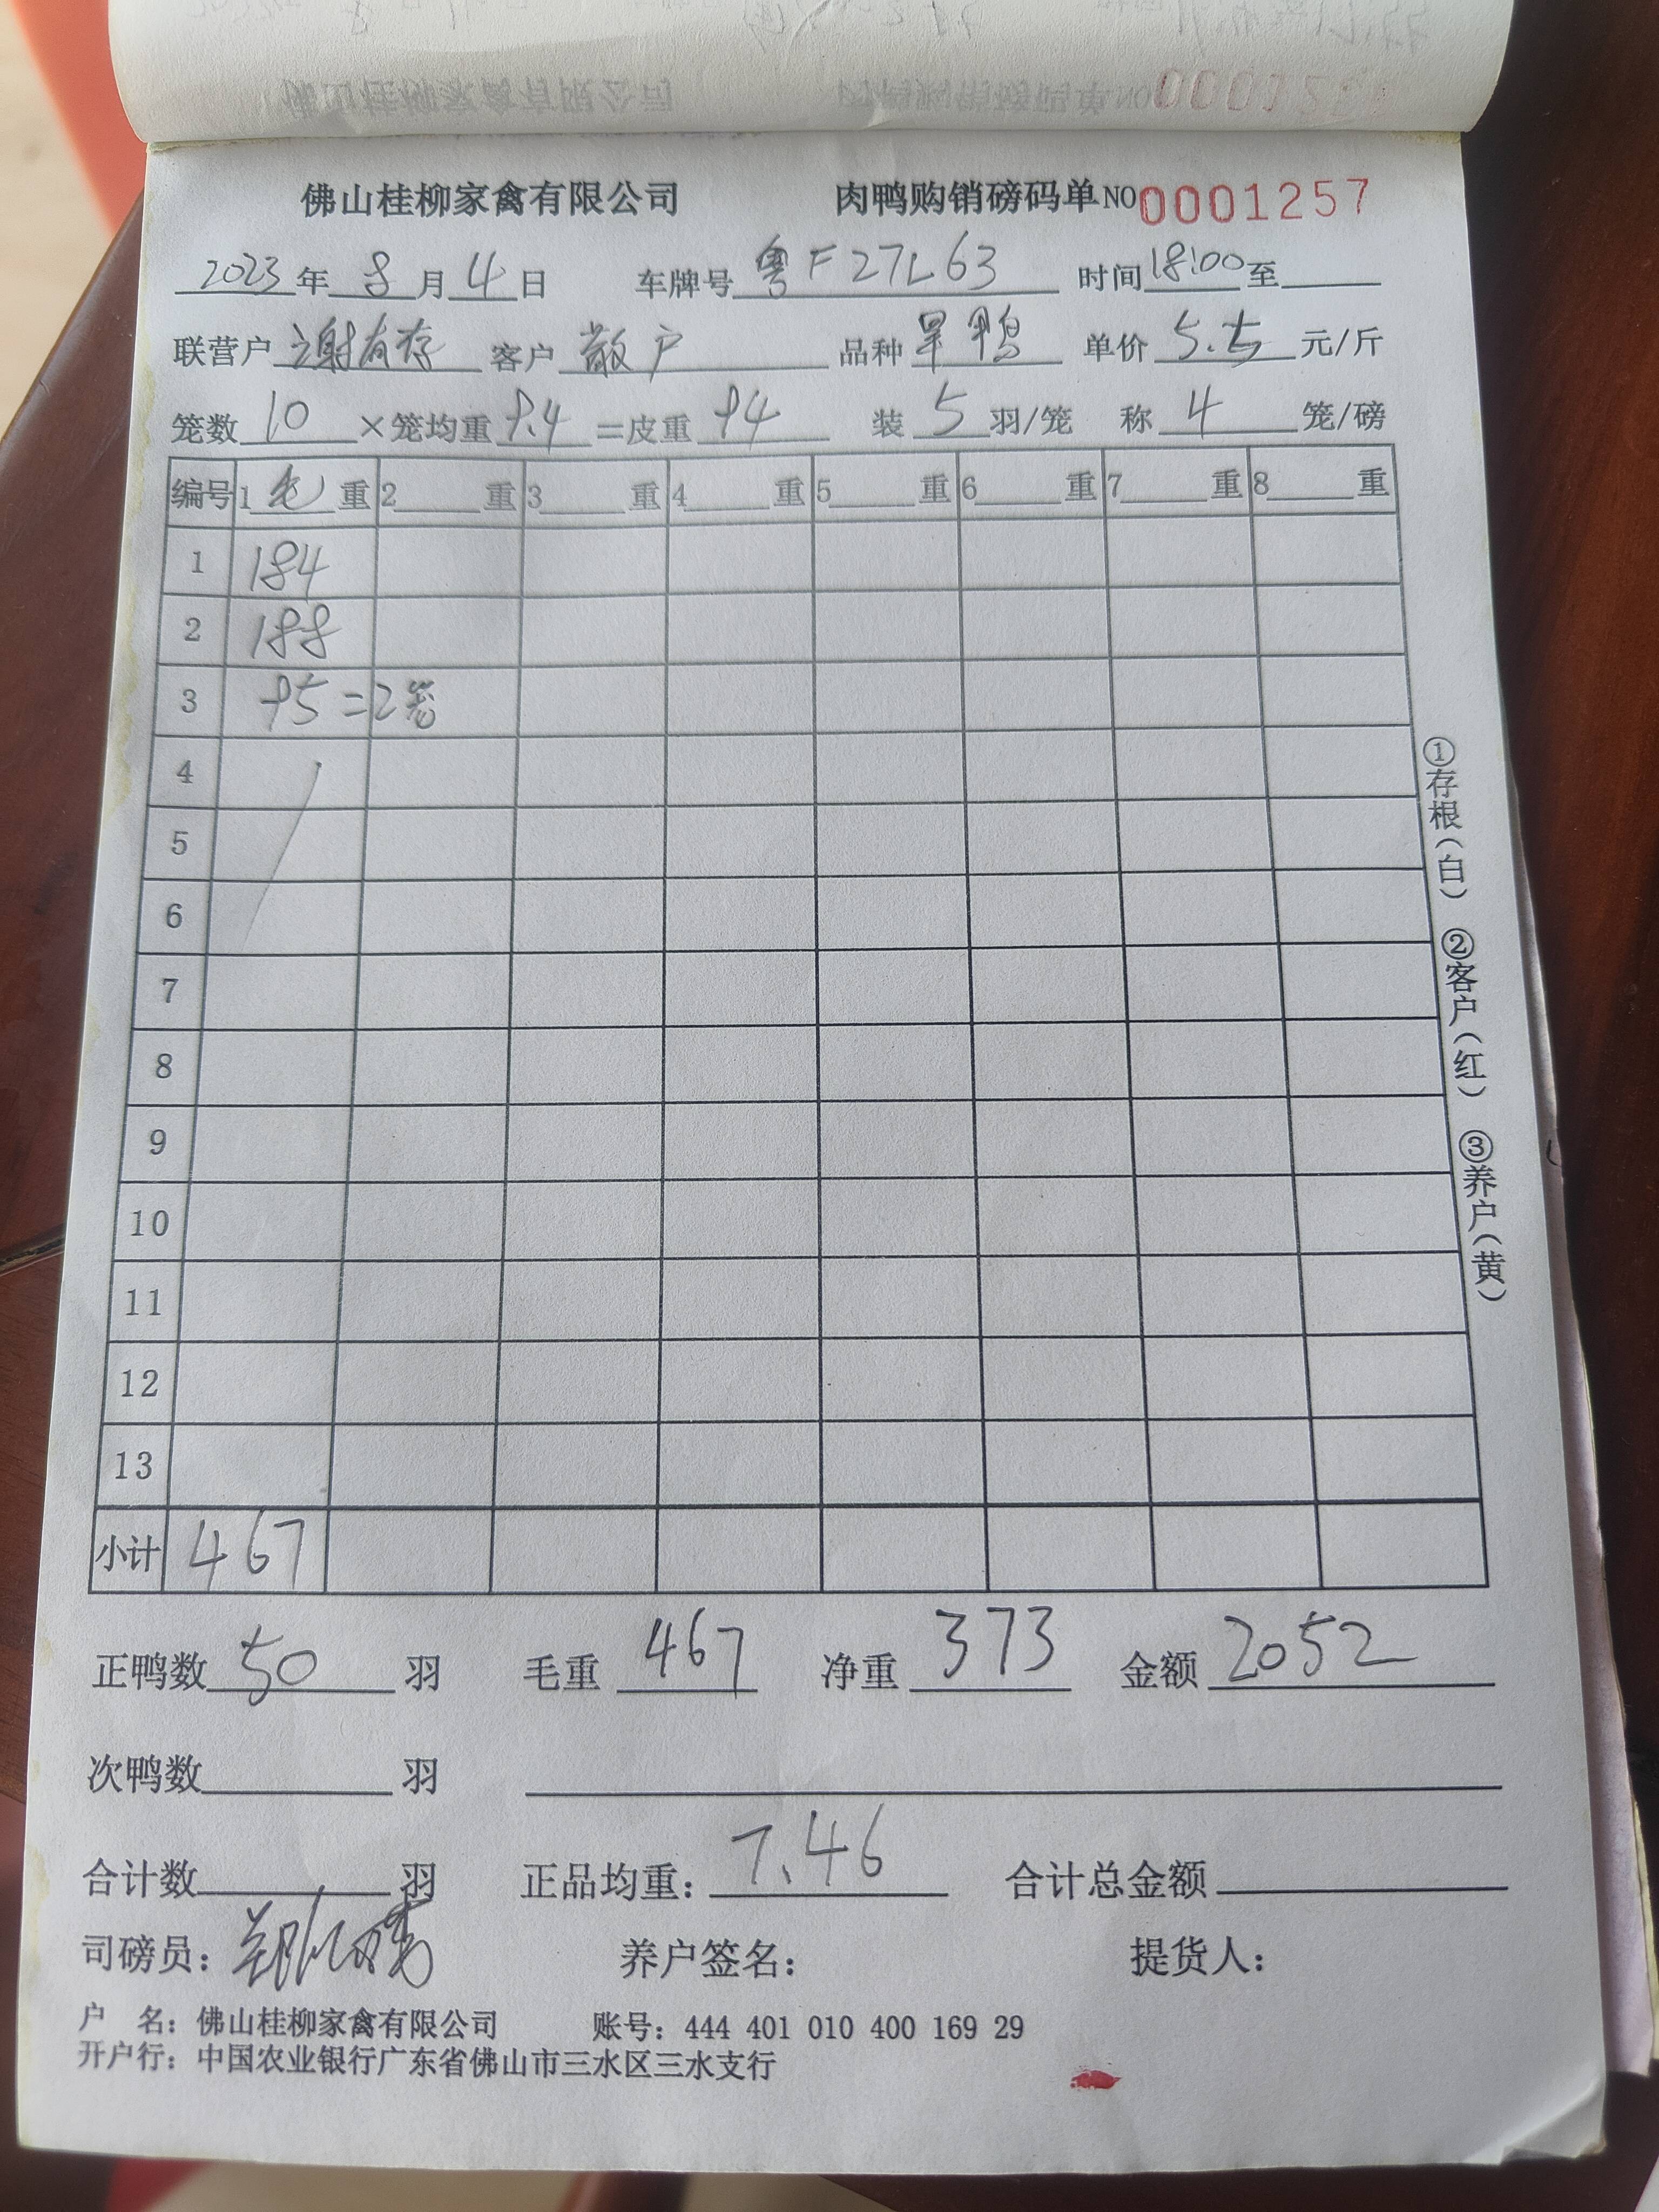 佛山桂柳家禽有限公司 肉鸭购销磅码单NO 0001257
2023年8月4日 车牌号 粤F27L63 时间18:00至
联营户 谢有存 客户 散户 品种 旱鸭 单价 5.5 元/斤
笼数 10 ×笼均重 9.4 =皮重 94 装 5 羽/笼 称 4 笼/磅
编号 1 毛 重 2 重 3 重 4 重 5 重 6 重 7 重 8 重
1 184
2 188
3 95=2笼
4
5
6
7
8
9
10
11
12
13
小计 467
正鸭数 50 羽 毛重 467 净重 373 金额 2052
次鸭数 羽
合计数 羽 正品均重: 7.46 合计总金额
司磅员: 养户签名: 提货人:
户 名: 佛山桂柳家禽有限公司 账号: 444 401 010 400 169 29
开户行: 中国农业银行广东省佛山市三水区三水支行
①存根(白) ②客户(红) ③养户(黄)